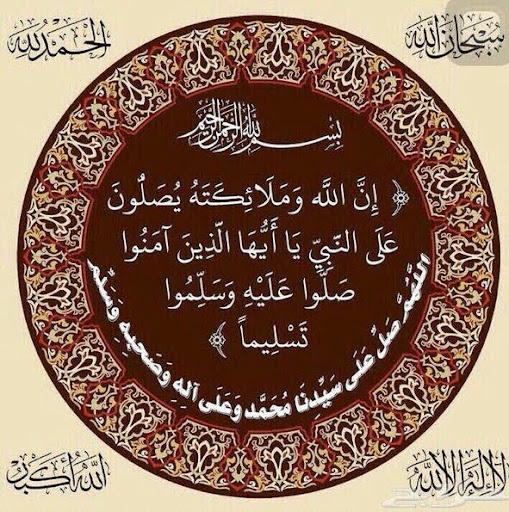 سبحان الله
الحمد لله
بسم الله الرحمن الرحيم
﴿ إِنَّ اللَّه وَمَلَائِكَتَهُ يُصَلُّونَ
عَلَى النَّبِيِّ يَا أَيُّهَا الَّذِينَ آمَنُوا
صَلُّوا عَلَيْهِ وَسَلِّمُوا
تَسْلِيماً ﴾
اللَّهُمَّ صَلِّ عَلَى سَيِّدِنَا مُحَمَّد وَعَلَى آلِهِ وَصَحْبِهِ وَسَلِّم
لا إله إلا الله
الله أكبر